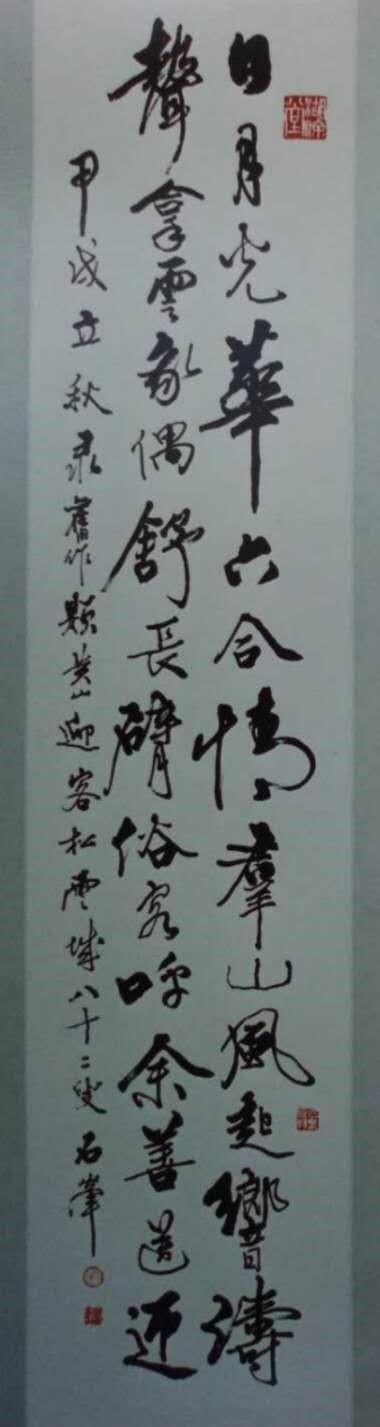 日月光華六合情羣山風起響濤
聲拿雲象偶舒長臂俗客呼余善送迎
甲戌立秋录舊作題黄山迎客松雲城八十二叟石峯